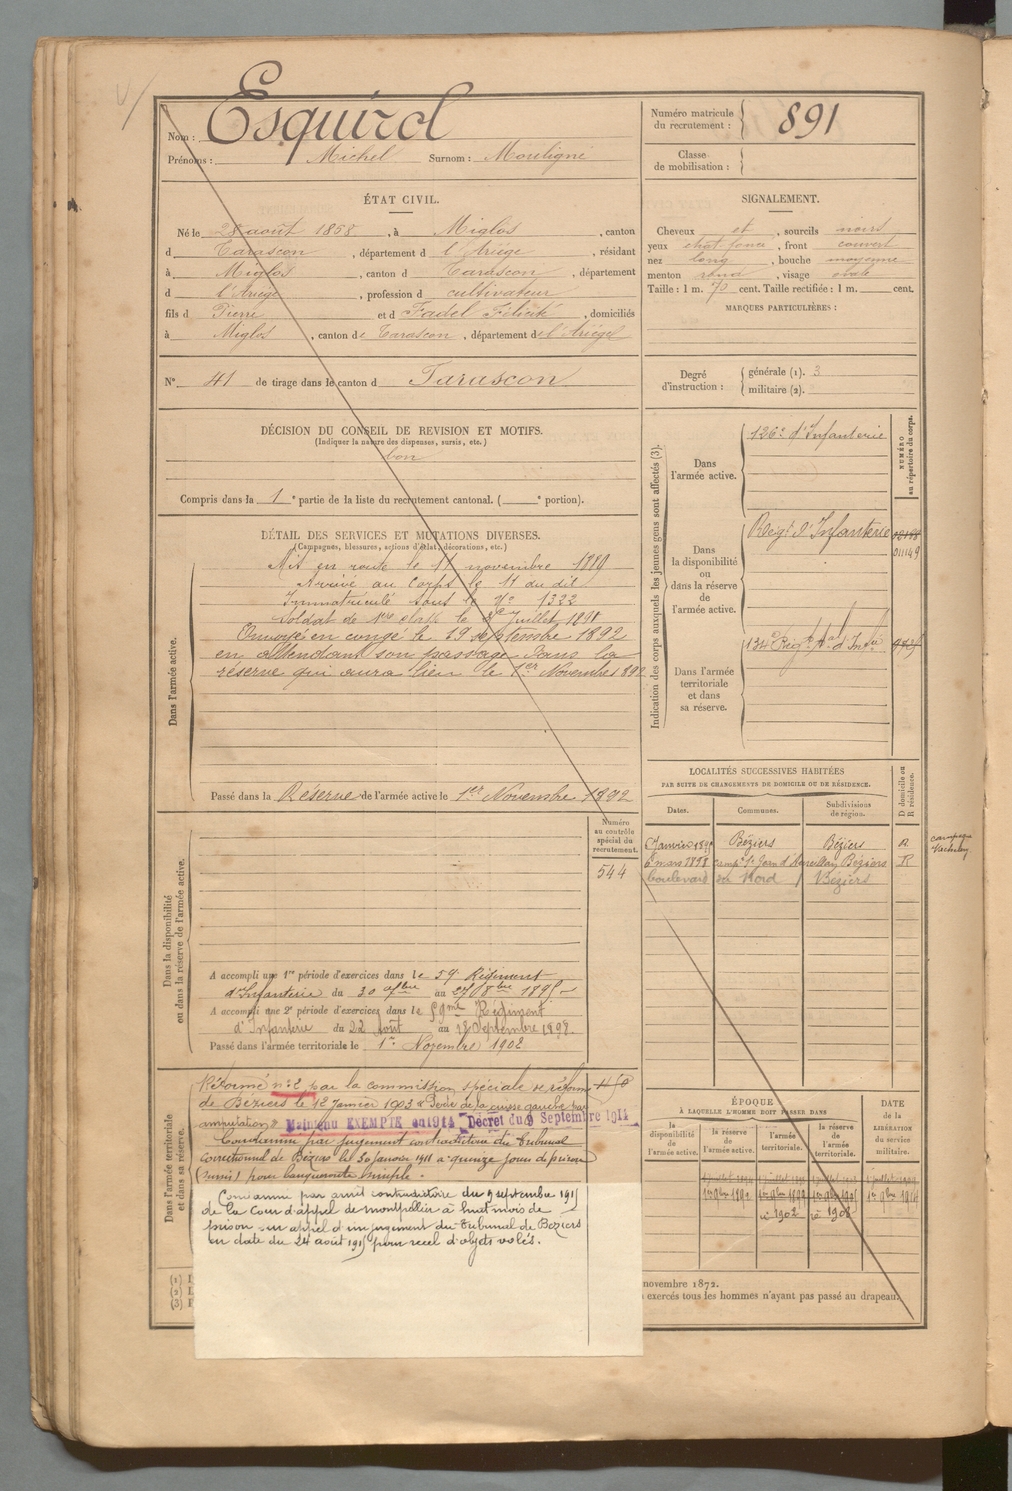 Nom : Esquirol
Prénoms : Michel Surnom : Mouligné
Numéro matricule du recrutement : 891
Classe de mobilisation :
ÉTAT CIVIL.
Né le 28 août 1868, à Miglos, canton
d Tarascon, département d l'Ariège, résidant
à Miglos, canton d Tarascon, département
d l'Ariège, profession d cultivateur
fils d Pierre et d Fadel Félicité, domiciliés
à Miglos, canton de Tarascon, département de l'Ariège
SIGNALEMENT.
Cheveux et, sourcils noirs
yeux chat. foncé, front couvert
nez long, bouche moyenne
menton rond, visage ovale
Taille : 1 m. 70 cent. Taille rectifiée : 1 m. cent.
MARQUES PARTICULIÈRES :
N° 41 de tirage dans le canton d Tarascon
Degré d'instruction : générale (1). 3
militaire (2).
DÉCISION DU CONSEIL DE REVISION ET MOTIFS.
(Indiquer la nature des dispenses, sursis, etc.)
bon
Compris dans la 1e partie de la liste du recrutement cantonal. ( e portion).
DÉTAIL DES SERVICES ET MUTATIONS DIVERSES.
(Campagnes, blessures, actions d'éclat, décorations, etc.)
Dans l'armée active.
Mis en route le 11 novembre 1889
Arrivé au corps le 11 du dit
Immatriculé sous le No 1322
Soldat de 1re classe le Juillet 1891
Envoyé en congé le 29 septembre 1892
en attendant son passage dans la
réserve qui aura lieu le 1er Novembre 1892
Passé dans la Réserve de l'armée active le 1er Novembre 1892
Indication des corps auxquels les jeunes gens sont affectés (3).
NUMÉRO au répertoire du corps.
Dans l'armée active.
126e d'Infanterie
Dans la disponibilité ou dans la réserve de l'armée active.
Régt d'Infanterie
011149
Dans l'armée territoriale et dans sa réserve.
134e Régt tal d'Infie
LOCALITÉS SUCCESSIVES HABITÉES
PAR SUITE DE CHANGEMENTS DE DOMICILE OU DE RÉSIDENCE.
Dates. Communes. Subdivisions de région. D domicile ou R résidence.
Béziers Béziers R
6 mars 1898 Béziers R
boulevard du Nord / Béziers
campagne
Dans la disponibilité ou dans la réserve de l'armée active.
Numéro au contrôle spécial du recrutement.
544
A accompli une 1re période d'exercices dans le 59e Régiment
d'Infanterie du 30 7bre au 27 8bre 1895
A accompli une 2e période d'exercices dans le 59me Régiment
d'Infanterie du 22 août au 18 Septembre 1898.
Passé dans l'armée territoriale le 1er Novembre 1902
Dans l'armée territoriale et dans sa réserve.
Réformé n° 2 par la commission spéciale de réforme
de Béziers le 12 Janvier 1903 « Perte de la cuisse gauche par
amputation »
Maintenu EXEMPTÉ en 1914 Décret du 9 Septembre 1914
Condamné par jugement contradictoire du Tribunal
Correctionnel de Béziers le 30 janvier 1911 à quinze jours de prison
(sursis) pour banqueroute simple.
Condamné par arrêt contradictoire du 9 septembre 1915
de la Cour d'appel de Montpellier à huit mois de
prison sur appel d'un jugement du Tribunal de Béziers
en date du 24 août 1915 pour recel d'objets volés.
ÉPOQUE
À LAQUELLE L'HOMME DOIT PASSER DANS
DATE de la LIBÉRATION du service militaire.
la disponibilité de l'armée active. la réserve de l'armée active. l'armée territoriale. la réserve de l'armée territoriale.
1er 9bre 1892 1er 9bre 1914
1902 1908
(1)
(2)
(3)
novembre 1872.
exercés tous les hommes n'ayant pas passé au drapeau.